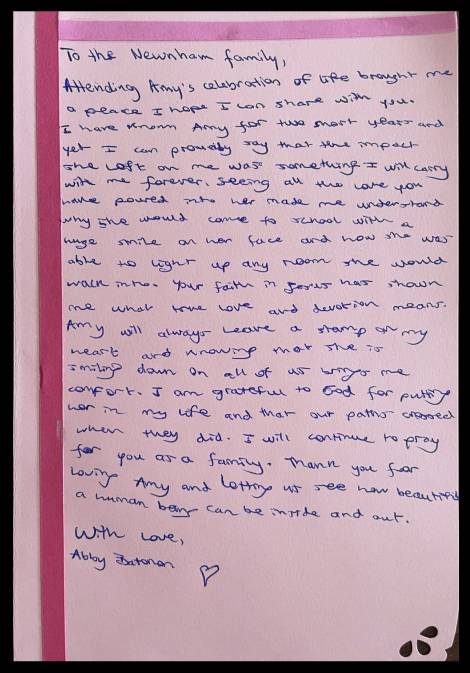 To the Newnham family,
Attending Amy's celebration of life brought me
a peace I hope I can share with you.
I have known Amy for two short years and
yet I can proudly say that the impact
she left on me was something I will carry
with me forever. Seeing all the love you
have poured into her made me understand
why she would come to school with a
huge smile on her face and how she was
able to light up any room she would
walk into. Your faith in Jesus has shown
me what true love and devotion means.
Amy will always leave a stamp on my
heart and knowing that she is
smiling down on all of us brings me
comfort. I am grateful to God for putting
her in my life and that our paths crossed
when they did. I will continue to pray
for you as a family. Thank you for
loving Amy and letting us see how beautiful
a human being can be inside and out.
With love,
Abby